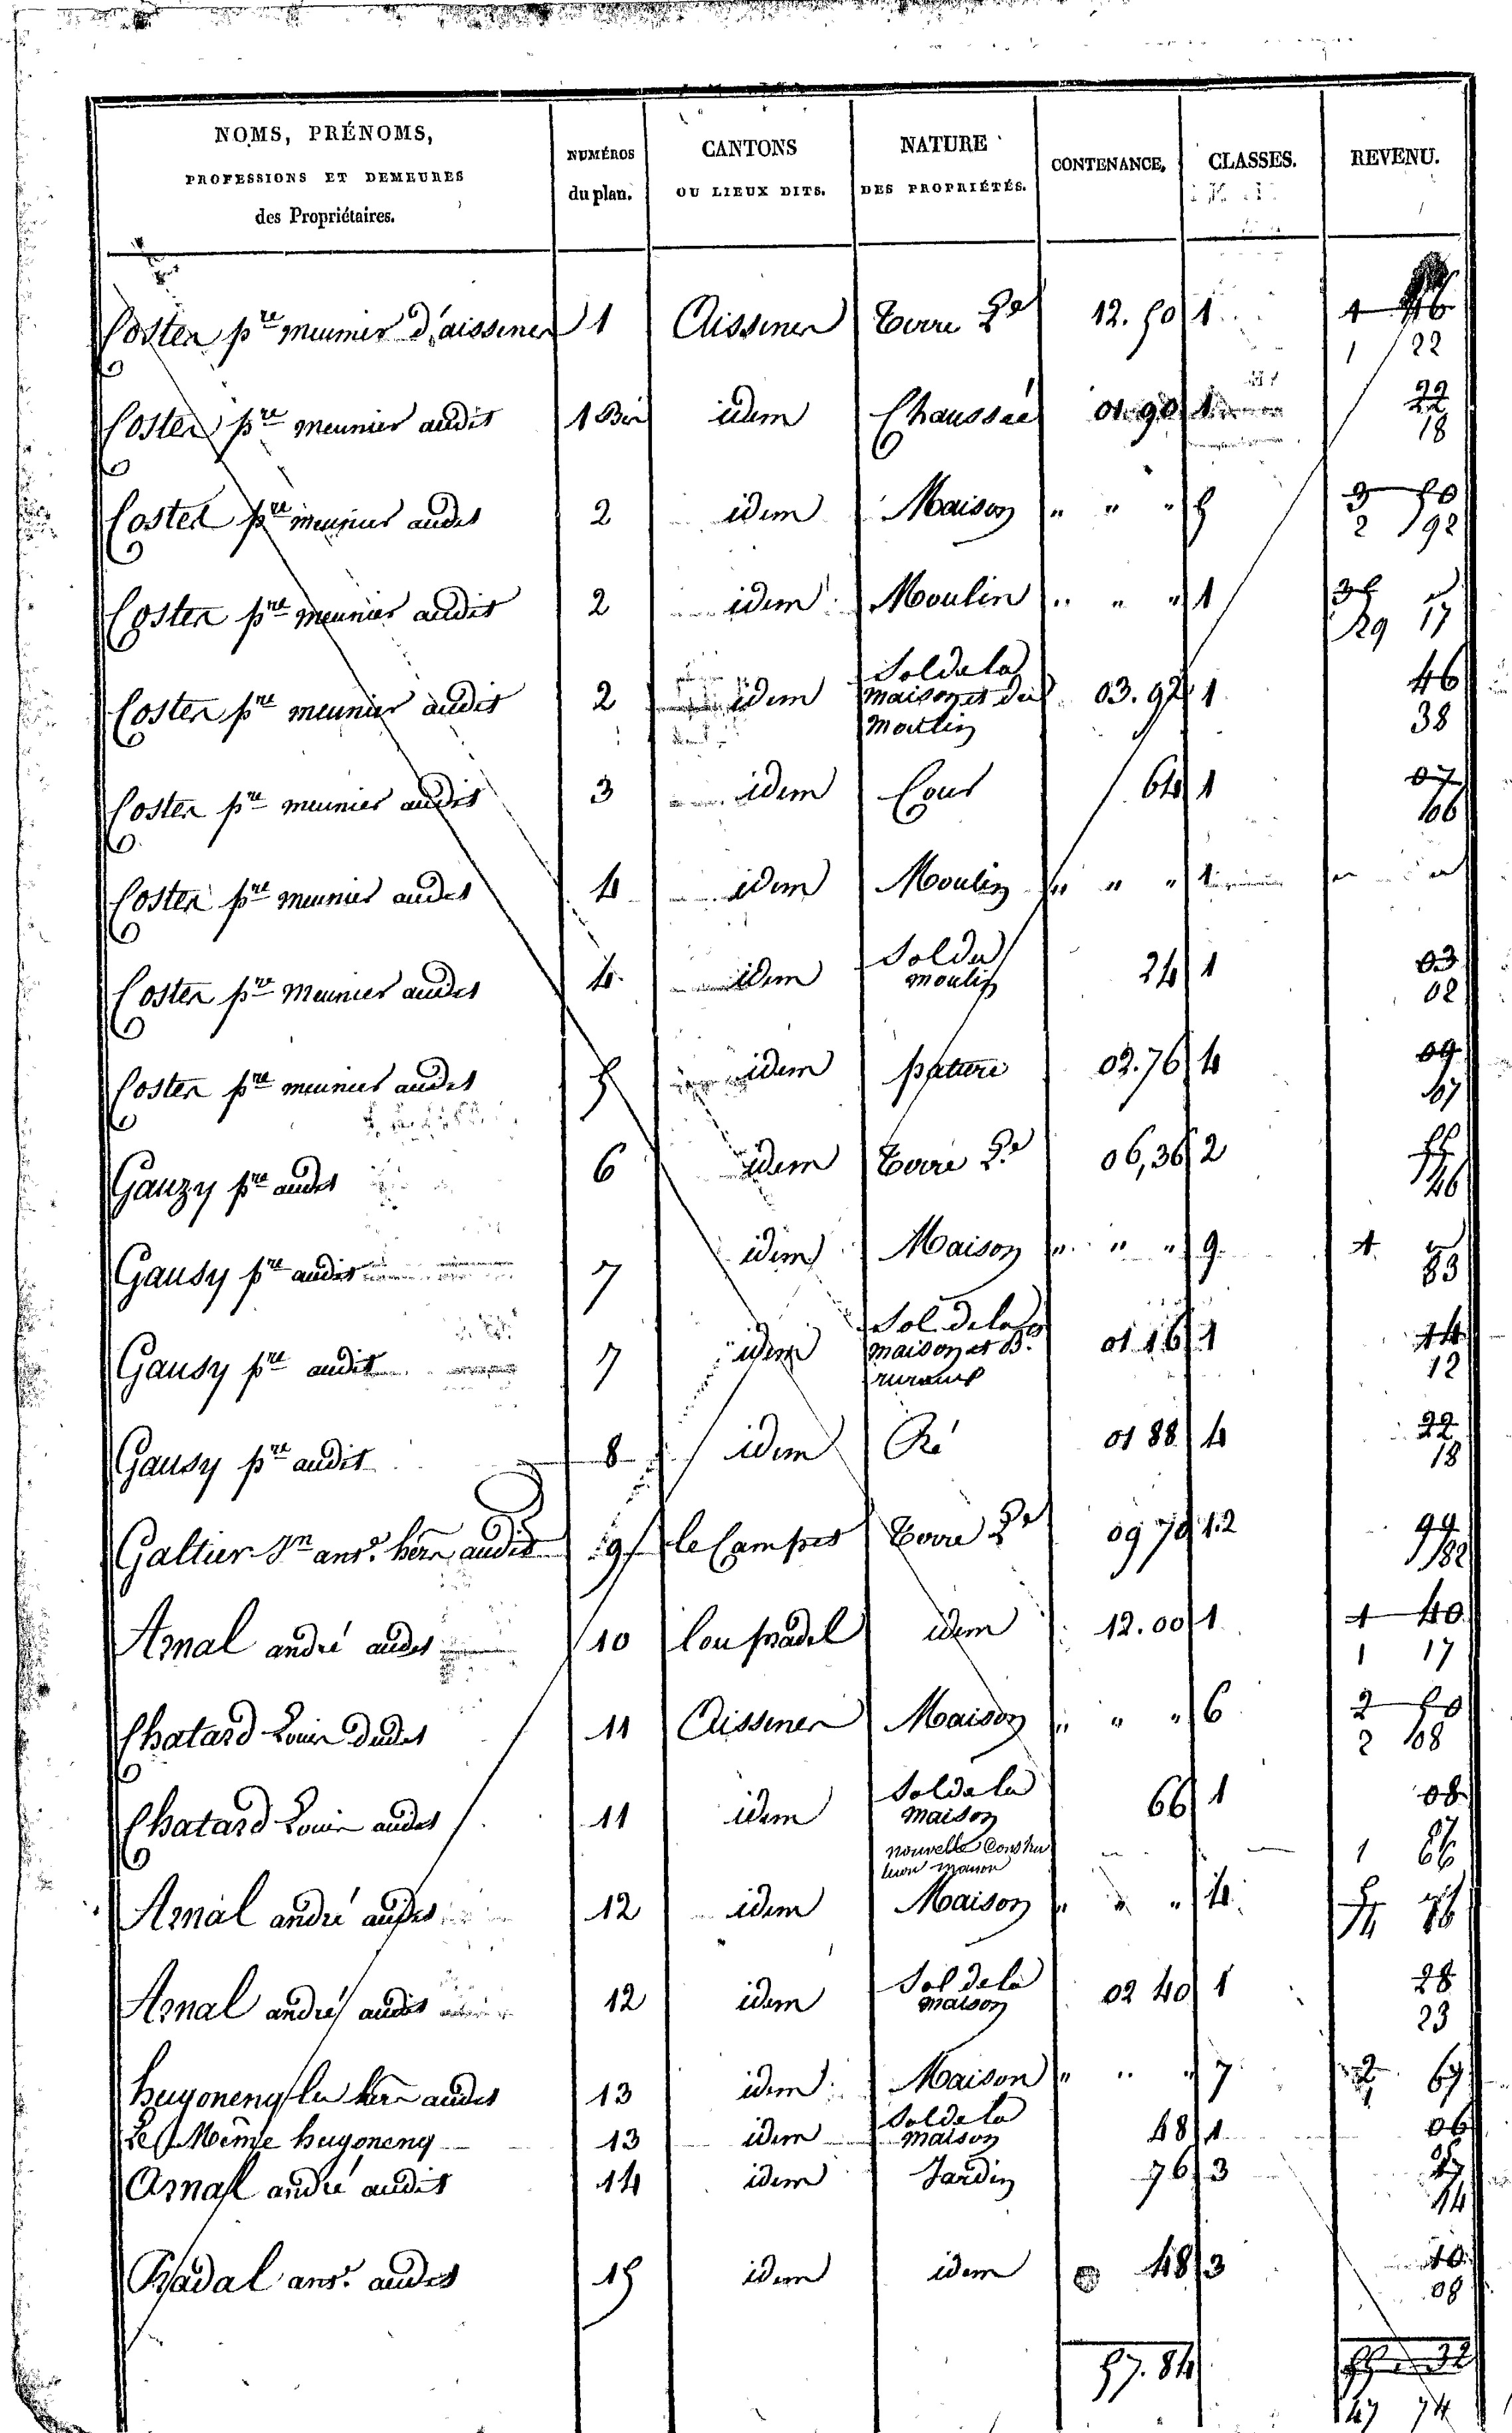 NOMS, PRÉNOMS,
PROFESSIONS ET DEMEURES
des Propriétaires.
NUMÉROS
du plan.
CANTONS
OU LIEUX DITS.
NATURE
DES PROPRIÉTÉS.
CONTENANCE,
CLASSES.
REVENU.
Coster pre meunier d'aissenes 1 Aissenes terre Le 12.50 1
1 22
Coster pre meunier audit 1 Bis idem Chaussée 01.90 1 22
18
Coster pre meunier audit 2 idem Maison " " " 5 3 50
2 92
Coster pre meunier audit 2 idem Moulin " " " 1 35 "
29 17
Coster pre meunier audit 2 idem Sol de la
maison et du
moulin 03.92 1 46
38
Coster pre meunier audit 3 idem Cour 64 1 07
06
Coster pre meunier audit 4 idem Moulin " " " 1 " "
Coster pre meunier audit 4 idem Sol du
moulin 24 1 03
02
Coster pre meunier audit 5 idem pature 02.76 4 09
07
Gauzy pre audit 6 idem terre Le 06,36 2 55
46
Gausy pre audit 7 idem Maison " " " 9 1 "
83
Gausy pre audit 7 idem Sol de la
maison et B.
ruraux 01 16 1 14
12
Gausy pre audit 8 idem Pré 01 88 4 22
18
Galtier Jn ans. hers audit 9 le Campes terre Le 09 70 1.2 99
82
Amal andré audit 10 lou pradel idem 12.00 1 1 40
1 17
Chatard Louis dudit 11 Aissenes Maison " " " 6 2 50
2 08
Chatard Louis audit 11 idem Sol de la
maison 66 1 08
nouvelle constru
tion maison 1
Amal andré audit 12 idem Maison " " " 4
Amal andré audit 12 idem Sol de la
maison 02 40 1 28
23
hugoneng les hers audit 13 idem Maison " " " 7 2
Le Même hugoneng 13 idem Sol de la
maison 48 1 06
Amal andré audit 14 idem Jardin 76 3
14
Nadal ans. audit 15 idem idem 48 3 10
08
57.84 55 32
47 74